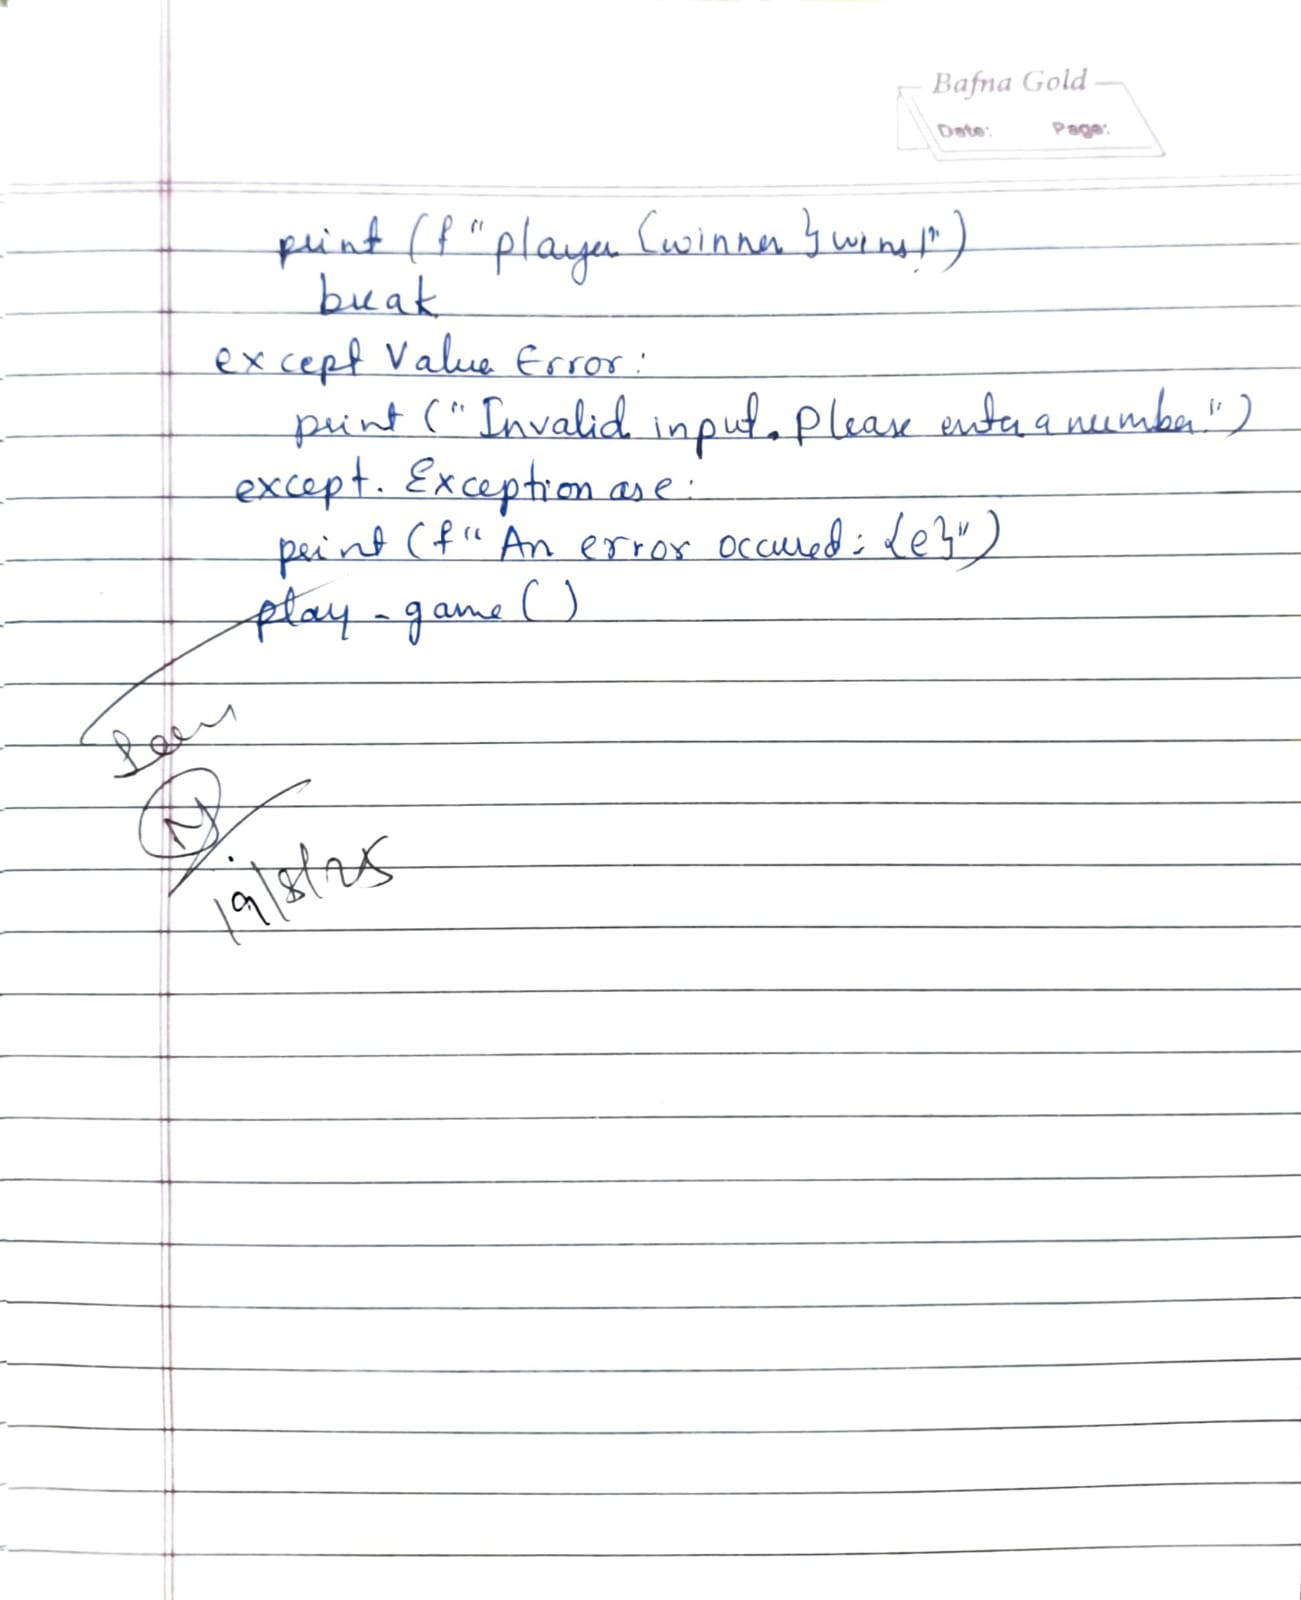 Bafna Gold
Date: Page:
print (f "player {winner} wins!")
break
except Value Error:
print (" Invalid input. Please enter a number.")
except. Exception as e:
print (f" An error occured: {e}")
play - game ()
Seen
N
19/8/25